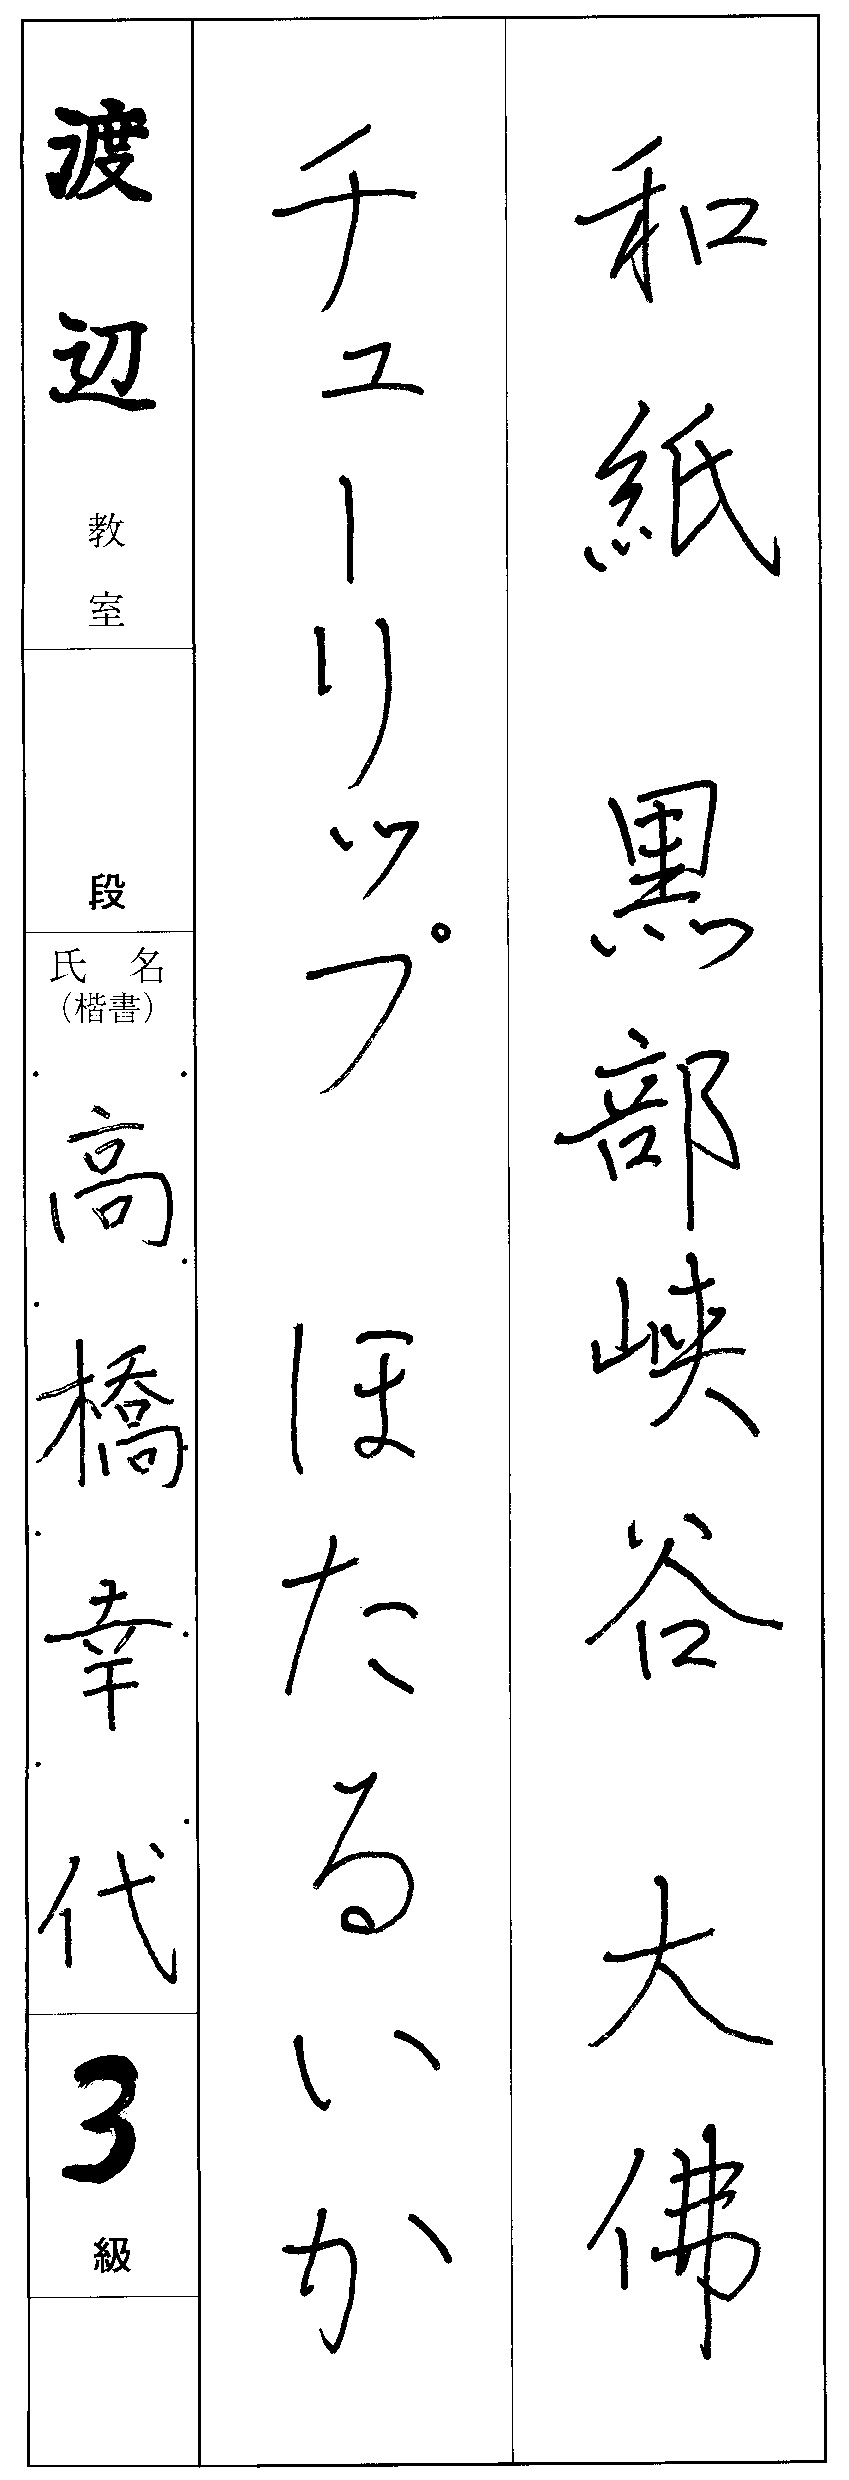 和紙　黒部峡谷　大佛
チューリップ　ほたるいか
渡辺教室
段
氏名
（楷書）
高橋幸代
3級